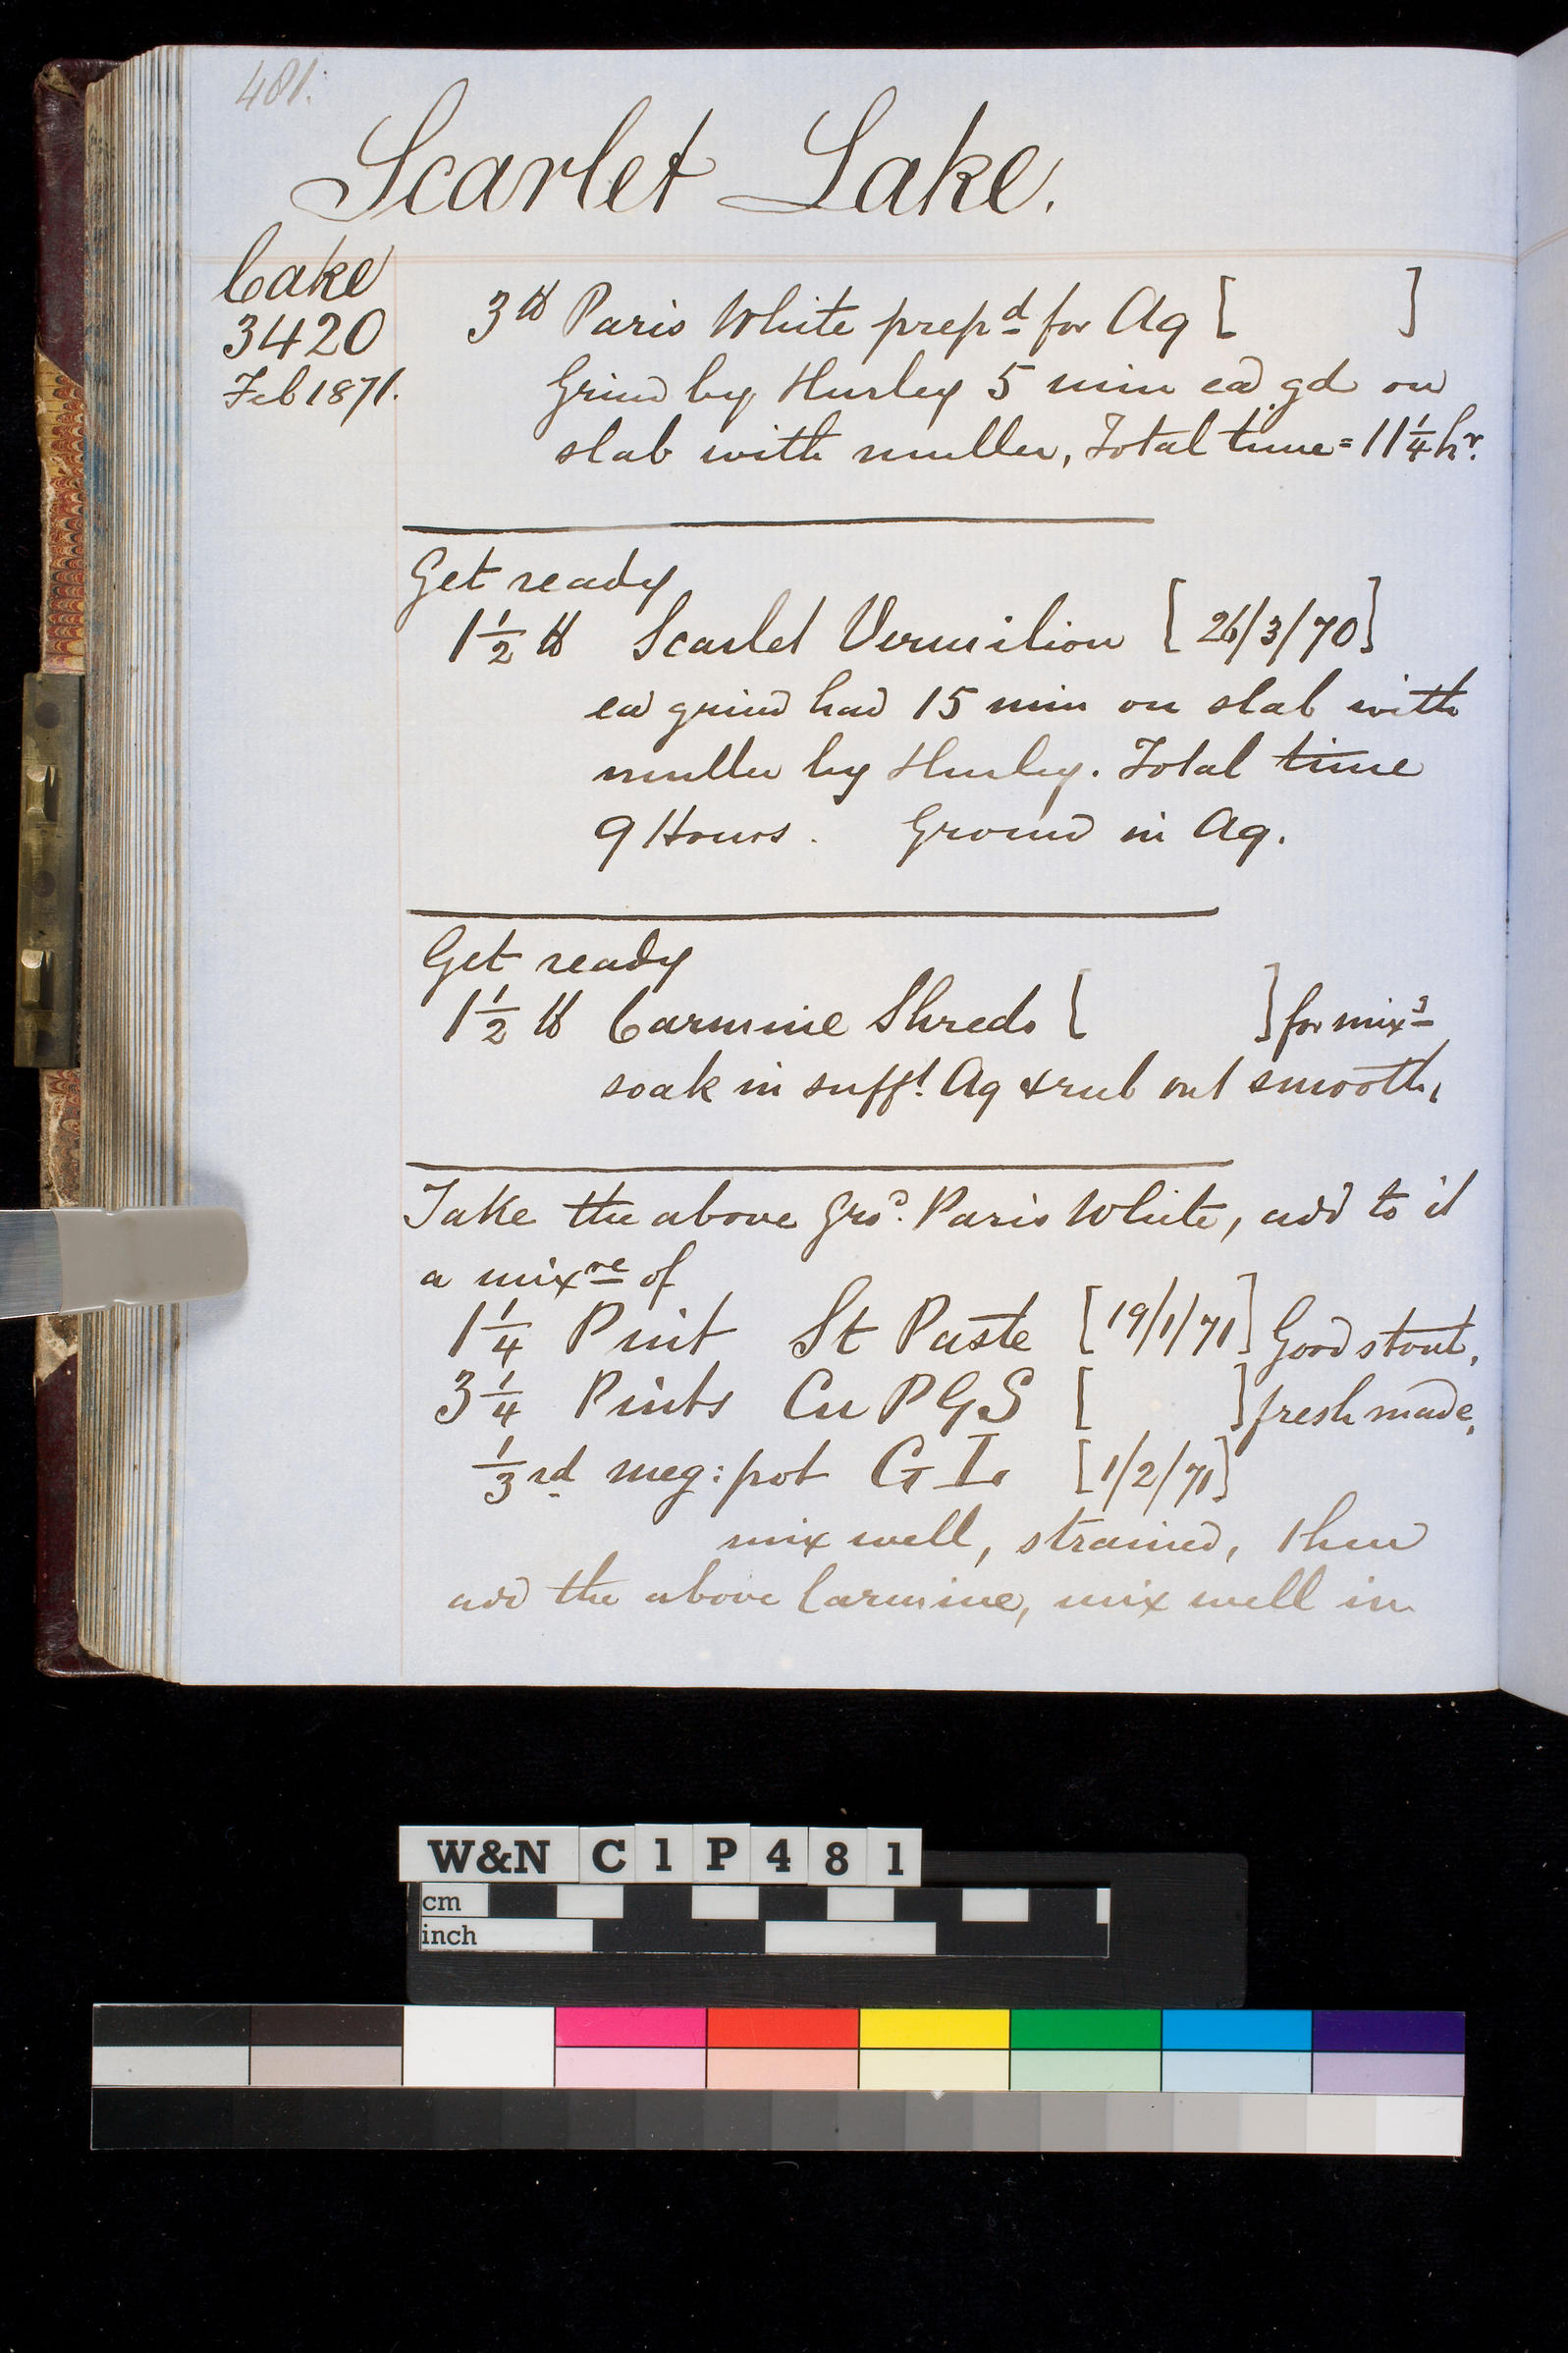 481.
Scarlet Lake.
Cake
3420
Feb 1871.
3 lb Paris White prepd for Aq [ ]
Grind by Hurley 5 min ea gd on
slab with muller, Total time = 11 1/4 hr.
Get ready
1 1/2 lb Scarlet Vermilion [26/3/70]
ea grind had 15 min on slab with
muller by Hurley. Total time
9 Hours. Ground in Aq.
Get ready
1 1/2 lb Carmine Shreds [ ] for mixg
soak in sufft Aq & rub out smooth,
Take the above Grd. Paris White, add to it
a mixre of
1 1/4 Pint St Paste [19/1/71] Good stout,
3 1/4 Pints Cu P G S [ ] fresh made,
1/3rd meg: pot G I. [1/2/71]
mix well, strained, then
add the above Carmine, mix well in
W&N C1P481
cm
inch